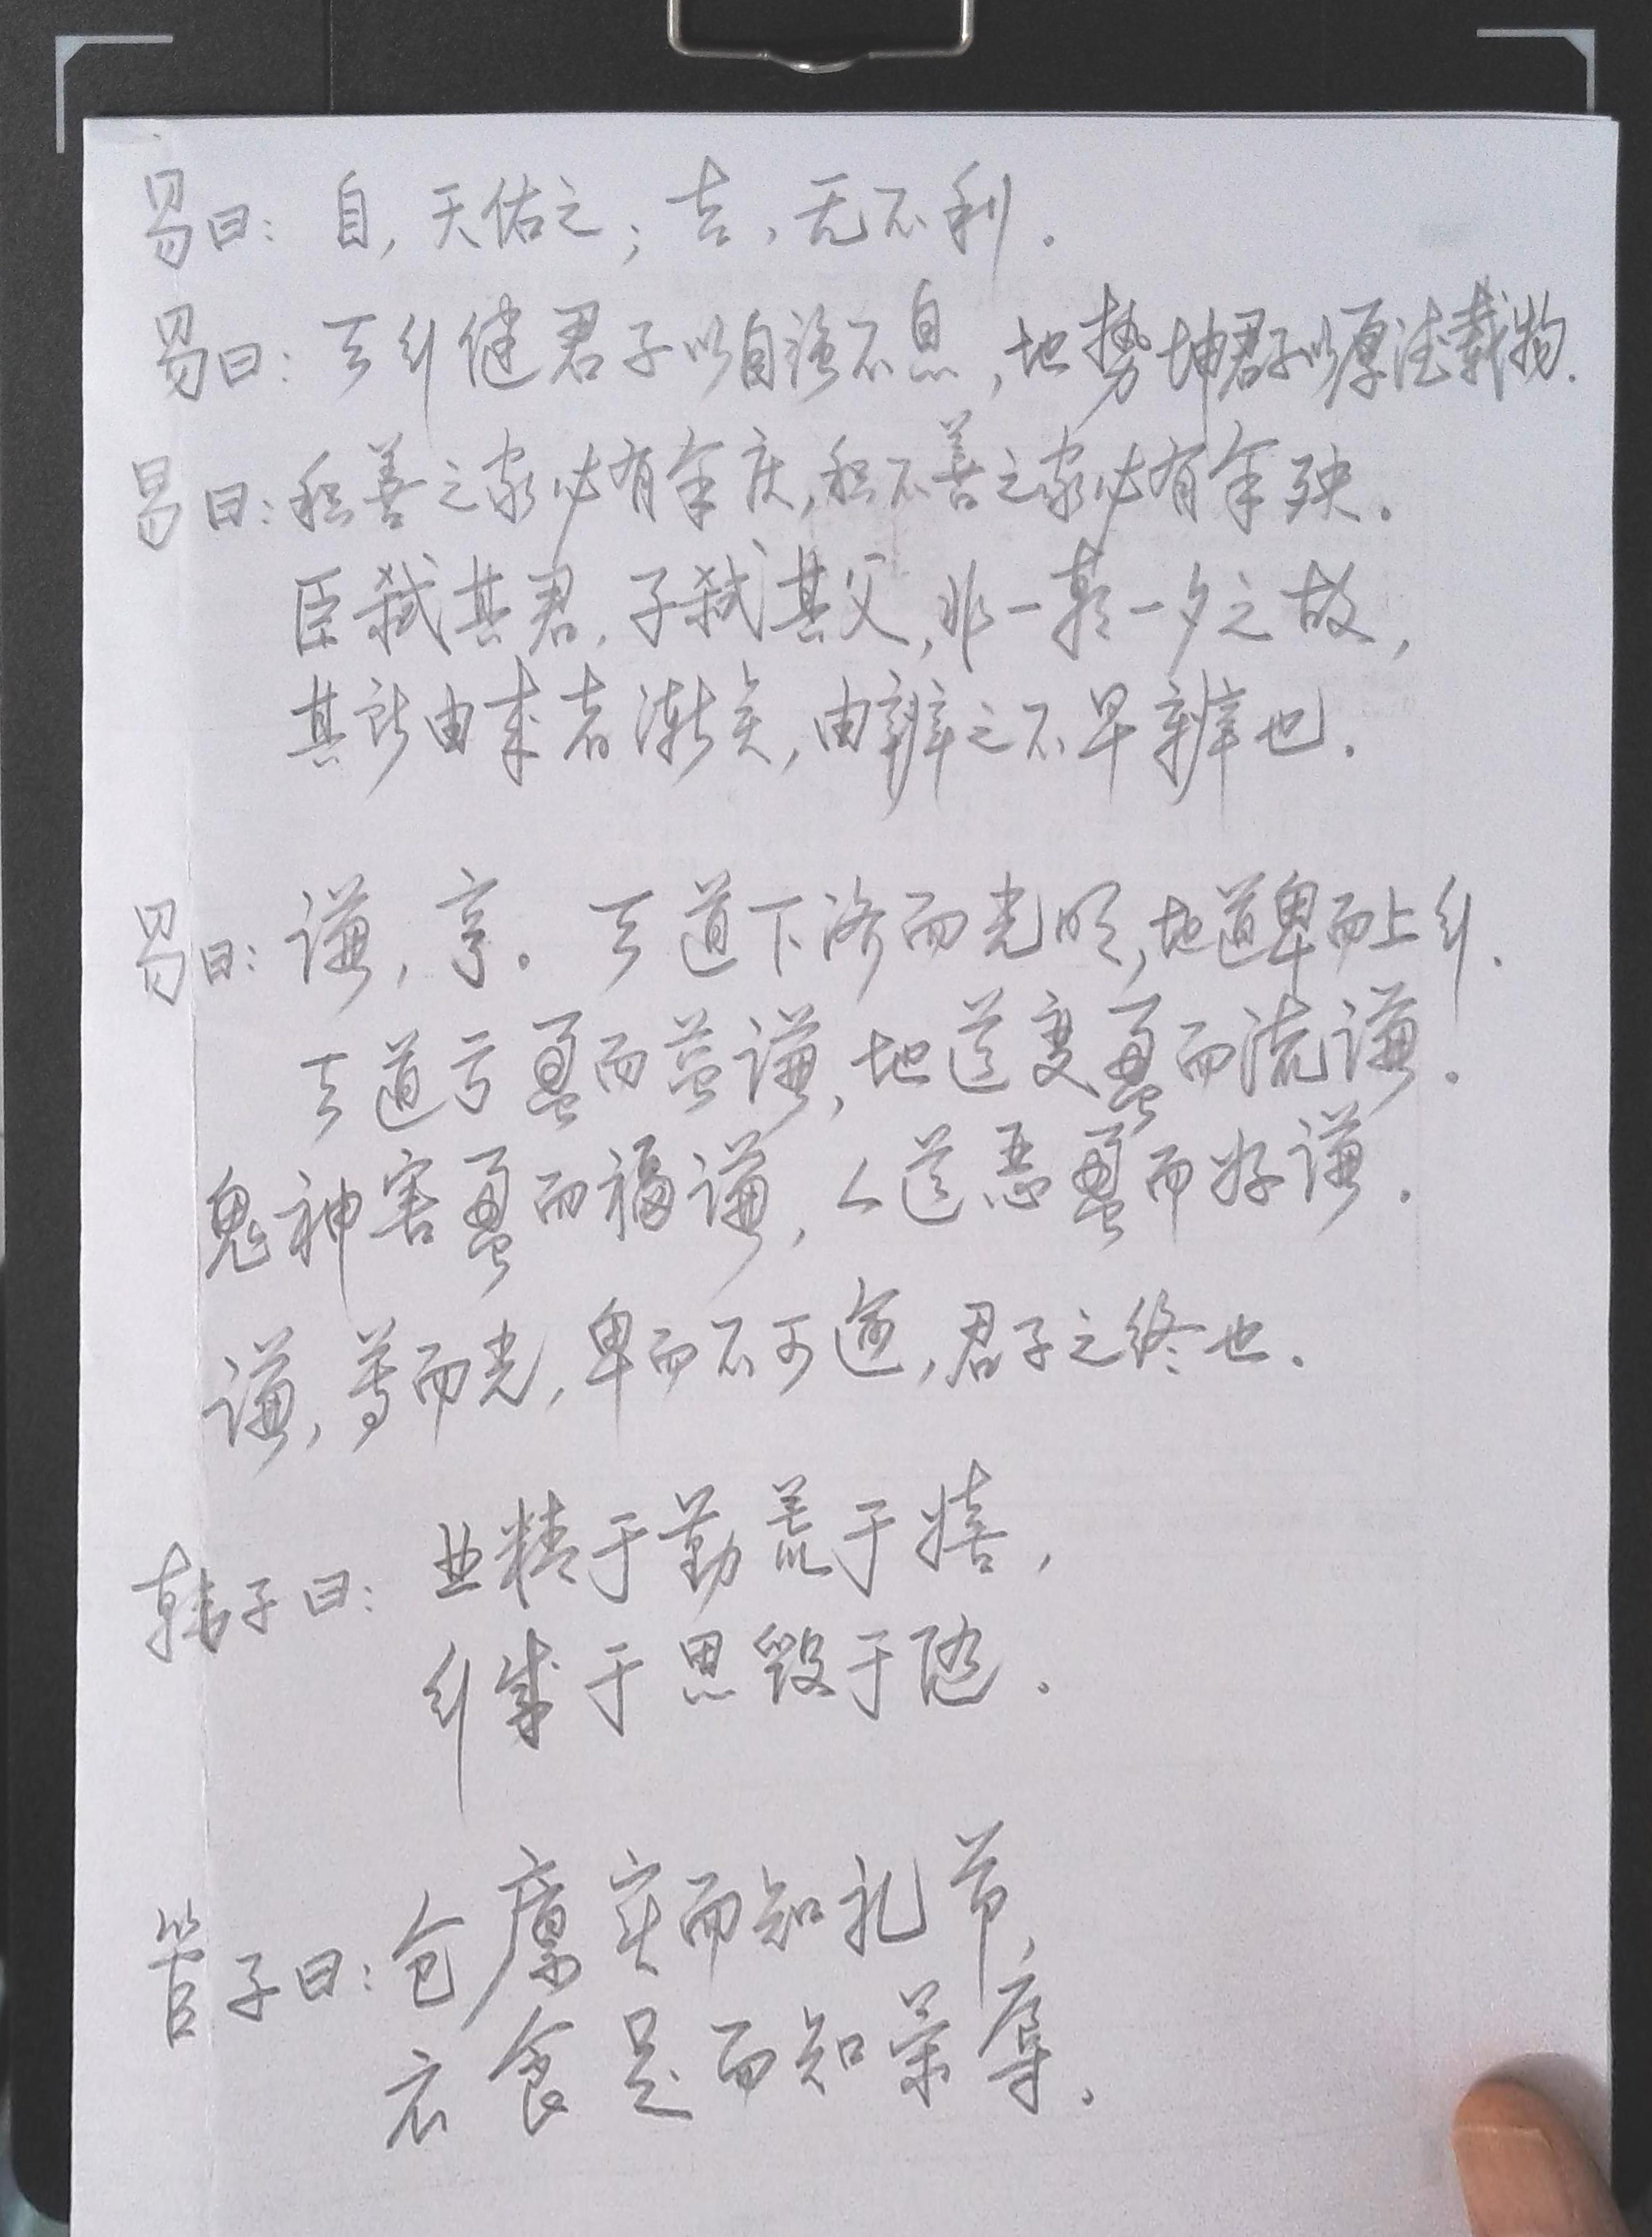 易曰：自，天佑之；吉，无不利．
易曰：天行健君子以自强不息，地势坤君子以厚德载物．
易曰：积善之家必有余庆，积不善之家必有余殃。
臣弑其君，子弑其父，非一朝一夕之故，
其所由来者渐矣，由辨之不早辨也．
易曰：谦，亨。天道下济而光明，地道卑而上行．
天道亏盈而益谦，地道变盈而流谦．
鬼神害盈而福谦，人道恶盈而好谦．
谦，尊而光，卑而不可逾，君子之终也．
韩子曰：业精于勤荒于嬉，
行成于思毁于随．
管子曰：仓廪实而知礼节，
衣食足而知荣辱．